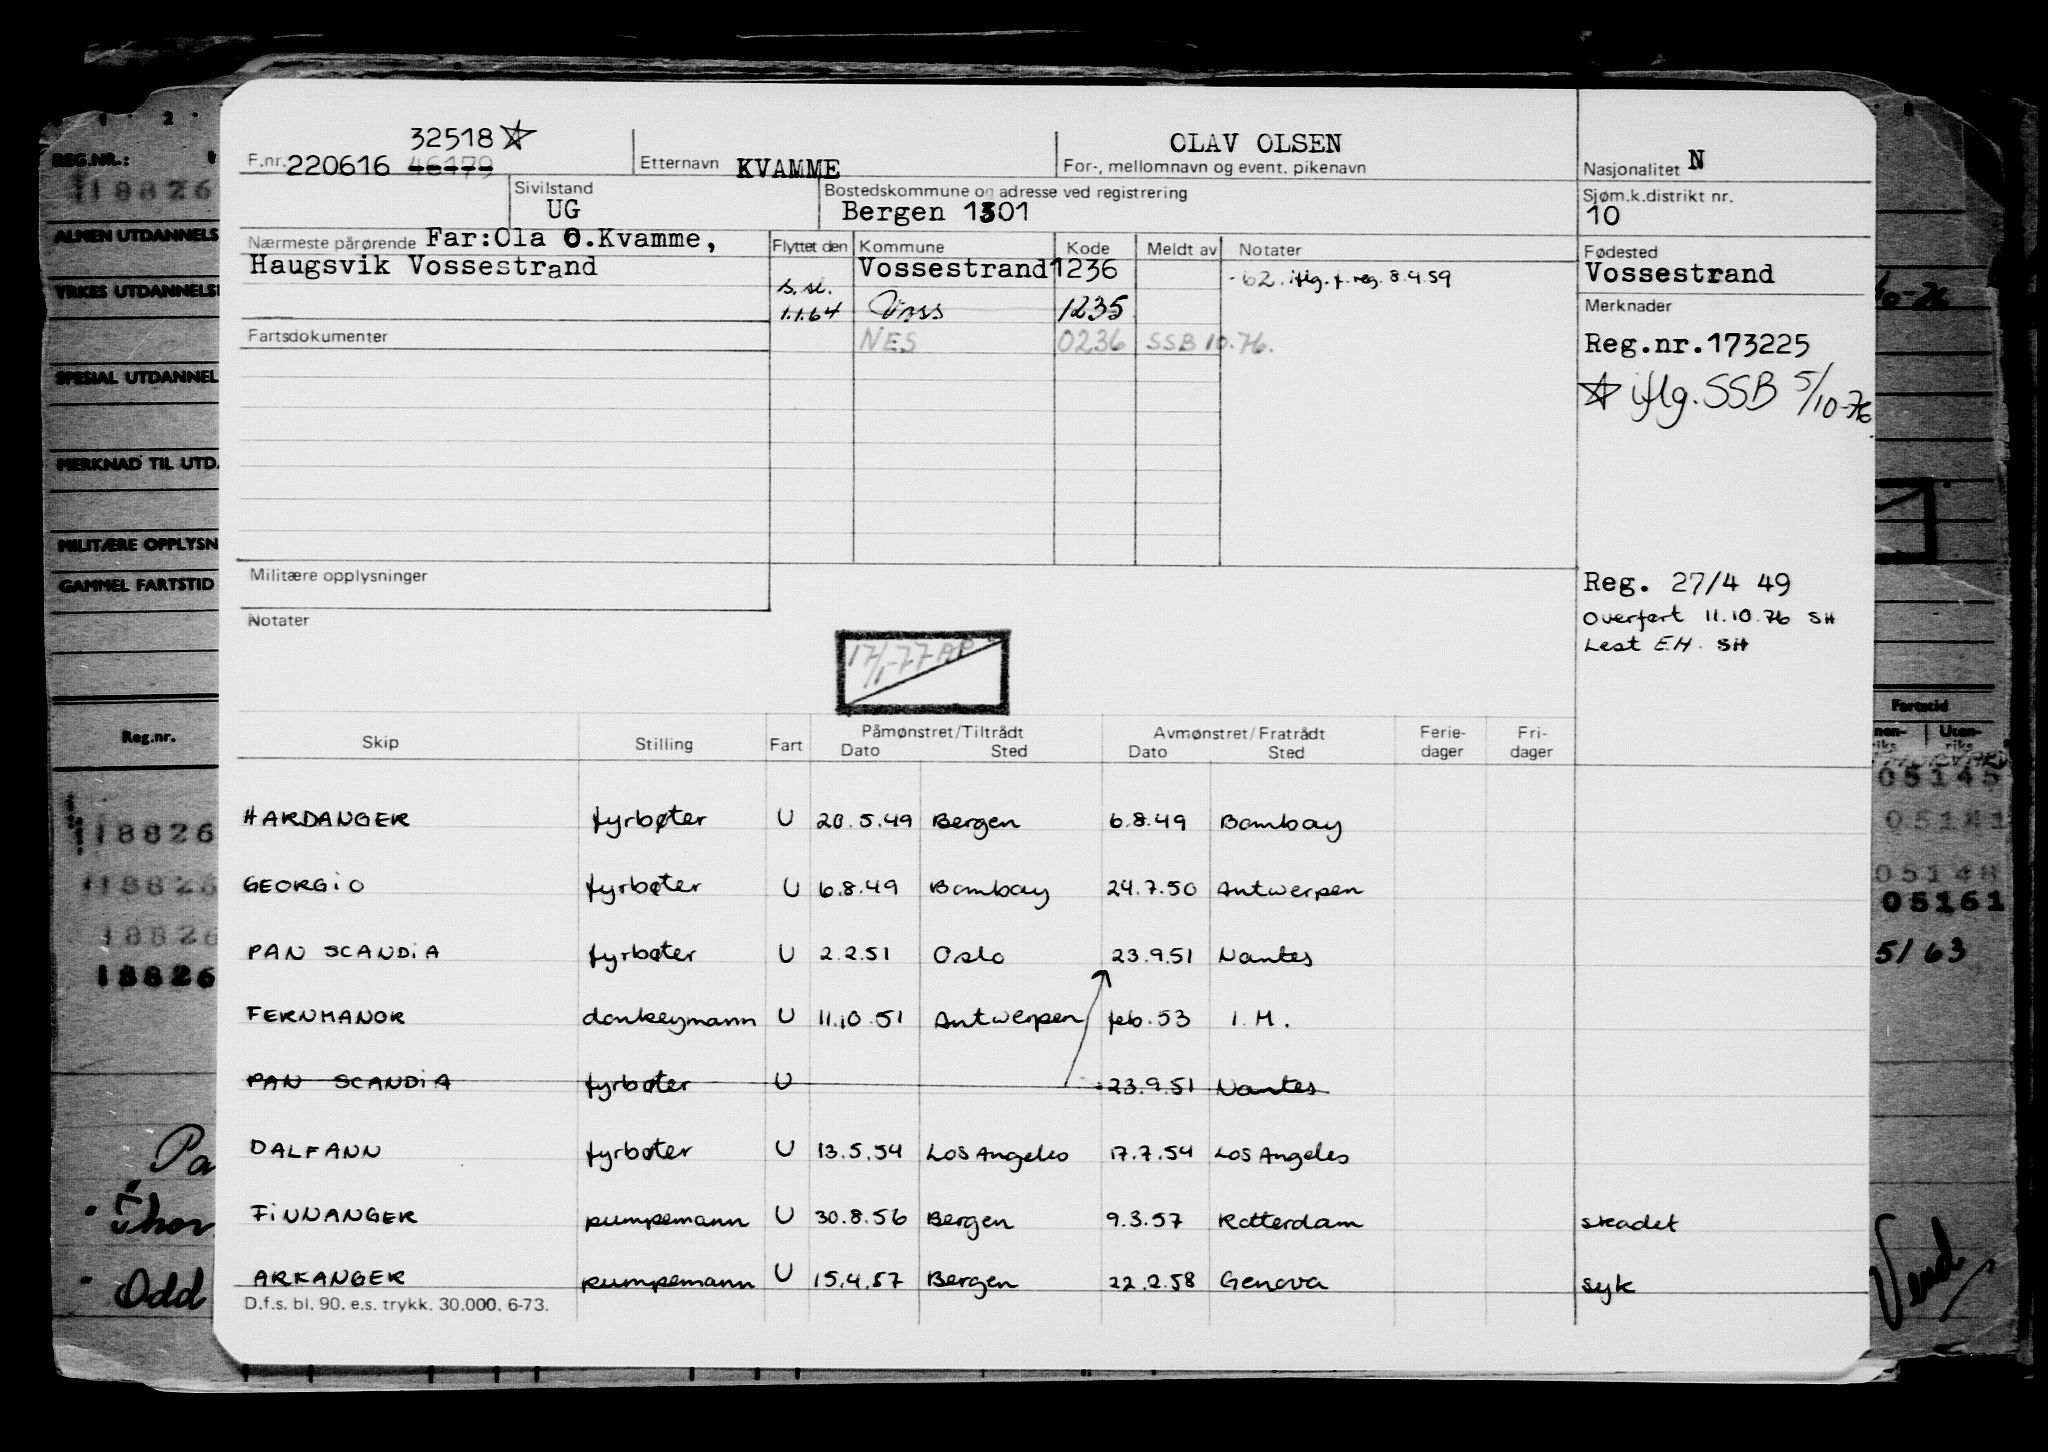 32518 ☆
F.nr. 220616 46179 Etternavn KVAMME OLAV OLSEN For-, mellomnavn og event. pikenavn Nasjonalitet N
Sivilstand UG Bostedskommune og adresse ved registrering Bergen 1301 Sjøm.k.distrikt nr. 10
Nærmeste pårørende Far:Ola O.Kvamme,
Haugsvik Vossestrand
Flyttet den Kommune Kode Meldt av Notater
Vossestrand 1236 -62. iflg. f. reg. 8.4.59
s.sl.
1.1.64 Voss 1235
NES 0236 SSB 10.76.
Fødested
Vossestrand
Merknader
Reg.nr.173225
☆ iflg. SSB 5/10-76
Fartsdokumenter
Militære opplysninger
Notater
Reg. 27/4 49
Overført 11.10.76 SH
Lest E.H. SH
17/1-77 AP
Skip Stilling Fart Påmønstret/Tiltrådt Dato Sted Avmønstret/Fratrådt Dato Sted Ferie-dager Fri-dager
HARDANGER fyrbøter U 20.5.49 Bergen 6.8.49 Bombay
GEORGIO fyrbøter U 6.8.49 Bombay 24.7.50 Antwerpen
PAN SCANDIA fyrbøter U 2.2.51 Oslo 23.9.51 Nantes
FERNMANOR donkeymann U 11.10.51 Antwerpen feb.53 I.H.
PAN SCANDIA fyrbøter U 23.9.51 Nantes
DALFANN fyrbøter U 13.5.54 Los Angeles 17.7.54 Los Angeles
FINNANGER pumpemann U 30.8.56 Bergen 9.3.57 Rotterdam skadet
ARKANGER pumpemann U 15.4.57 Bergen 22.2.58 Genova syk
D.f.s. bl. 90. e.s. trykk. 30.000. 6-73.
REG.NR.:
18826
ALMEN UTDANNELS
YRKES UTDANNELS
SPESIAL UTDANNEL
MERKNAD TIL UTD.
MILITÆRE OPPLYSN
GAMMEL FARTSTID
Reg.nr.
18826
18826
18826
18826
Pa
Thor
Odd
Fartstid
Uten-
riks
05145
05141
05148
05161
51 63
Vend